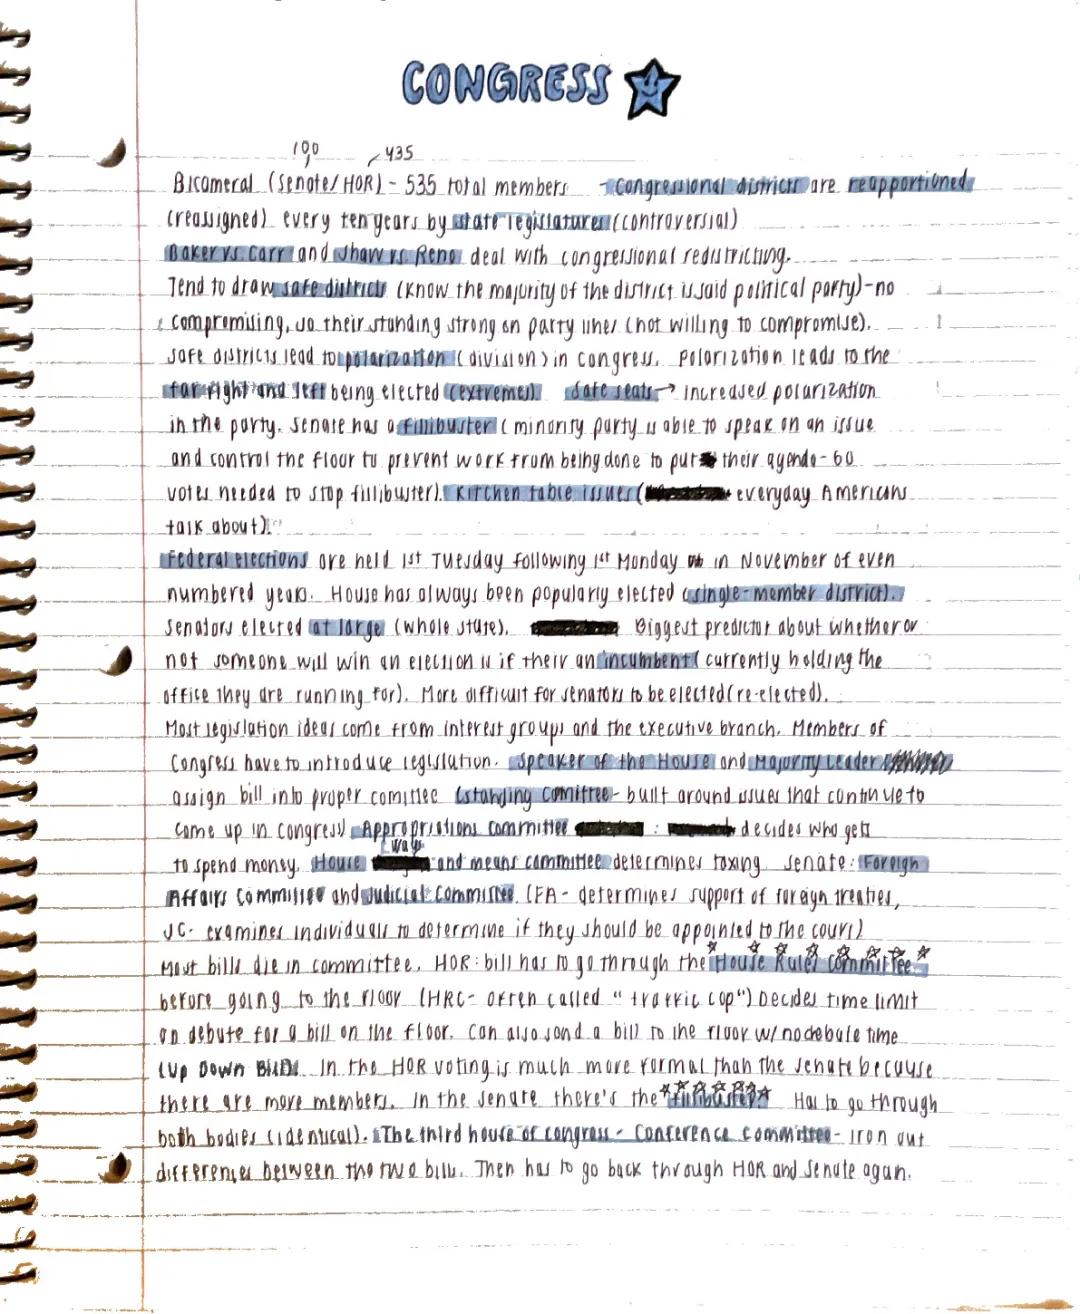 CONGRESS
100 435
Bicameral (Senate/HOR) - 535 total members - Congressional districts are reapportioned
(reassigned) every ten years by state legislatures (controversial)
Baker vs. Carr and Shaw vs. Reno deal with congressional redistricting.
Tend to draw safe districts (know the majority of the district is said political party) - no
compromising, so their standing strong on party lines (not willing to compromise).
Safe districts lead to polarization (division) in congress. Polarization leads to the
far right and left being elected (extremes). Safe seats → increased polarization
in the party. Senate has a fillibuster (minority party is able to speak on an issue
and control the floor to prevent work from being done to put their agenda - 60
votes needed to stop fillibuster). Kitchen table issues ( everyday Americans
talk about).
Federal elections are held 1st Tuesday following 1st Monday in November of even
numbered years. House has always been popularly elected (single-member district).
Senators elected at large (whole state). Biggest predictor about whether or
not someone will win an election is if their an incumbent (currently holding the
office they are running for). More difficult for senators to be elected (re-elected).
Most legislation ideas come from interest groups and the executive branch. Members of
Congress have to introduce legislation. Speaker of the House and Majority Leader
assign bill into proper comittee (standing comittee - built around issues that continue to
come up in congress) Appropriations committee : decides who gets
ways
to spend money. House and means committee determines taxing. Senate: Foreign
Affairs Committee and Judicial Committee. (FA - determines support of foreign treaties,
JC - examines individuals to determine if they should be appointed to the court)
Most bills die in committee. HOR: bill has to go through the House Rules Committee
before going to the floor (HRC - often called "traffic cop") Decides time limit
on debate for a bill on the floor. Can also send a bill to the floor w/ no debate time
(Up Down Bills). In the HOR voting is much more formal than the senate because
there are more members. In the senate there's the fillibuster Has to go through
both bodies (identical). The third house of congress - Conference committee - iron out
differences between the two bills. Then has to go back through HOR and Senate again.